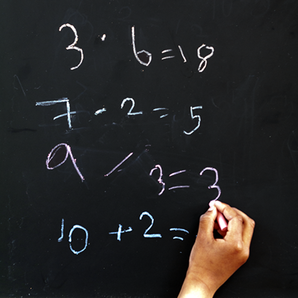 3 · 6 = 18
7 - 2 = 5
9 / 3 = 3
10 + 2 =